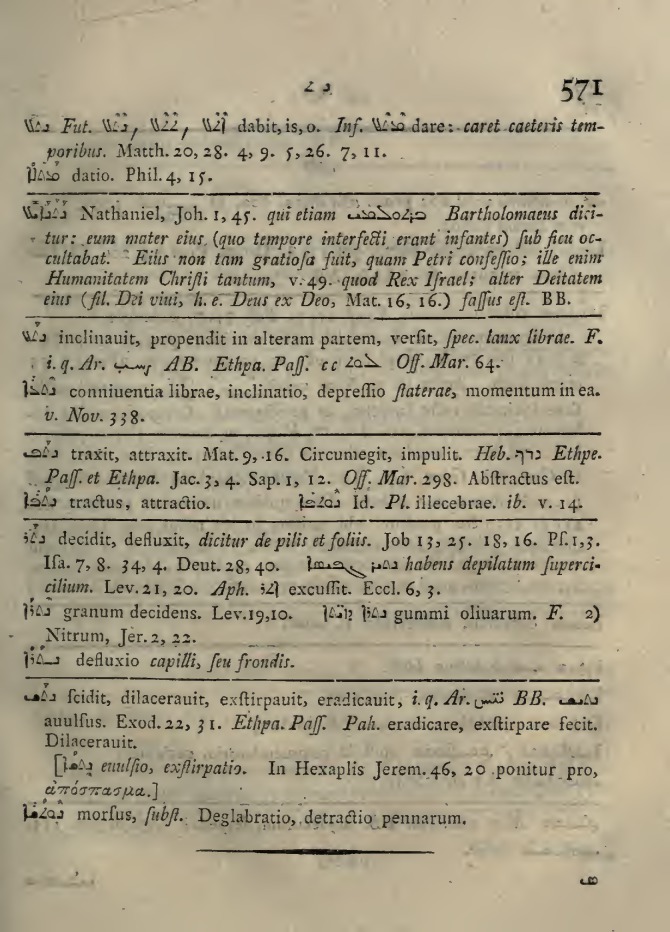 ܢ ܬ 571
ܢܬܠ Fut. ܢܬܠ, ܬܬܠ, ܐܬܠ dabit, is, o. Inf. ܡܬܠ dare: caret caeteris tem-
poribus. Matth. 20, 28. 4, 9. 5, 26. 7, 11.
datio. Phil. 4, 15.
ܢܬܢܝܐܝܠ Nathaniel, Joh. 1, 45. qui etiam ܒܪܬܘܠܡܝ Bartholomaeus dici-
tur: eum mater eius (quo tempore interfecti erant infantes) ſub ficu oc-
cultabat. Eius non tam gratioſa fuit, quam Petri confeſſio; ille enim
Humanitatem Chriſti tantum, v. 49. quod Rex Iſrael; alter Deitatem
eius (fil. Dei viui, h. e. Deus ex Deo, Mat. 16, 16.) faſſus eſt. BB.
inclinauit, propendit in alteram partem, verſit, ſpec. lanx librae. F.
i. q. Ar. AB. Ethpa. Paſſ. c c Off. Mar. 64.
conniuentia librae, inclinatio, depreſſio ſtaterae, momentum in ea.
v. Nov. 338.
ܢܬܦ traxit, attraxit. Mat. 9, 16. Circumegit, impulit. Heb. Ethpe.
Paſſ. et Ethpa. Jac. 3, 4. Sap. 1, 12. Off. Mar. 298. Abſtractus eſt.
ܢܬܦܐ tractus, attractio. ܢܬܘܦܐ Id. Pl. illecebrae. ib. v. 14.
ܢܬܪ decidit, defluxit, dicitur de pilis et foliis. Job 13, 25. 18, 16. Pſ. 1, 3.
Iſa. 7, 8. 34, 4. Deut. 28, 40. habens depilatum ſuperci-
cilium. Lev. 21, 20. Aph. ܐܬܪ excuſſit. Eccl. 6, 3.
ܢܬܪܐ granum decidens. Lev. 19, 10. ܢܬܪܐ ܕܙܝܬܐ gummi oliuarum. F. 2)
Nitrum, Jer. 2, 22.
ܢܬܪܐ defluxio capilli, ſeu frondis.
ܢܬܫ ſcidit, dilacerauit, exſtirpauit, eradicauit, i. q. Ar. نتس BB. ܢܬܝܫ
auulſus. Exod. 22, 31. Ethpa. Paſſ. Pah. eradicare, exſtirpare fecit.
Dilacerauit.
[ܢܬܫܐ euulſio, exſtirpatio. In Hexaplis Jerem. 46, 20 ponitur pro,
ἀπόσπασμα.]
ܢܬܘܫܐ morſus, ſubſt. Deglabratio, detractio pennarum.